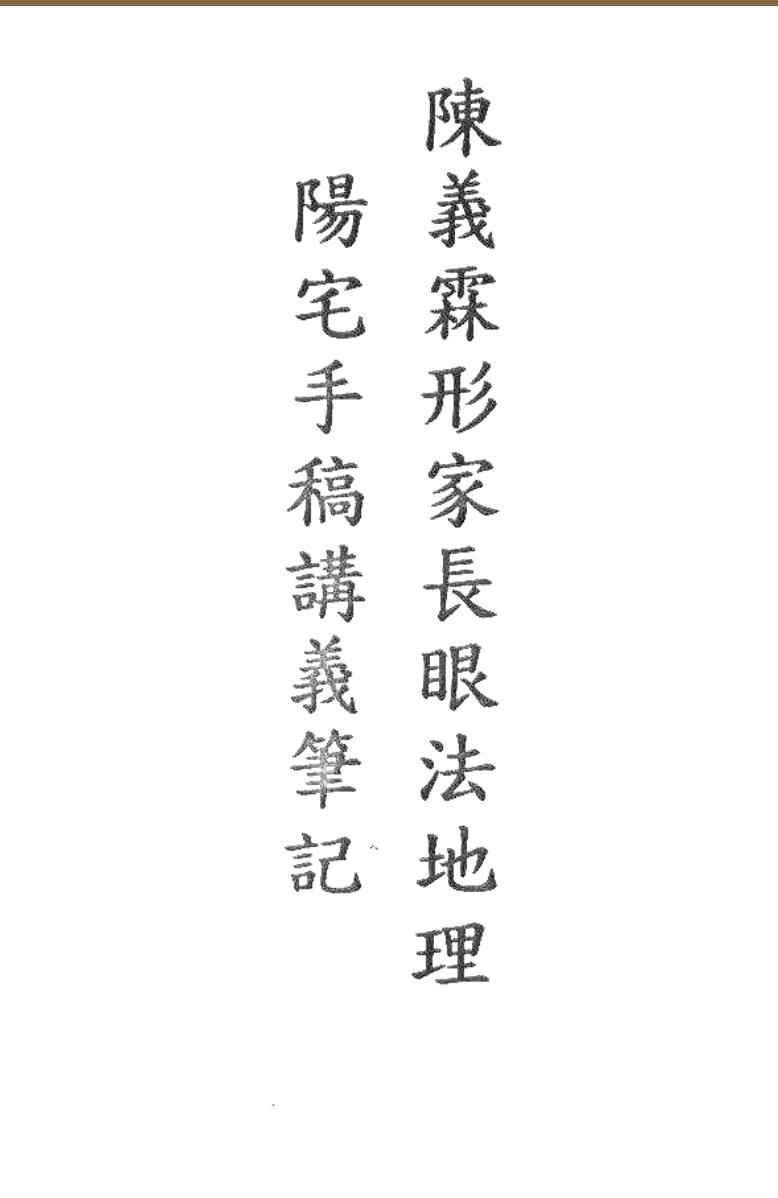 陳義霖形家長眼法地理
陽宅手稿講義筆記